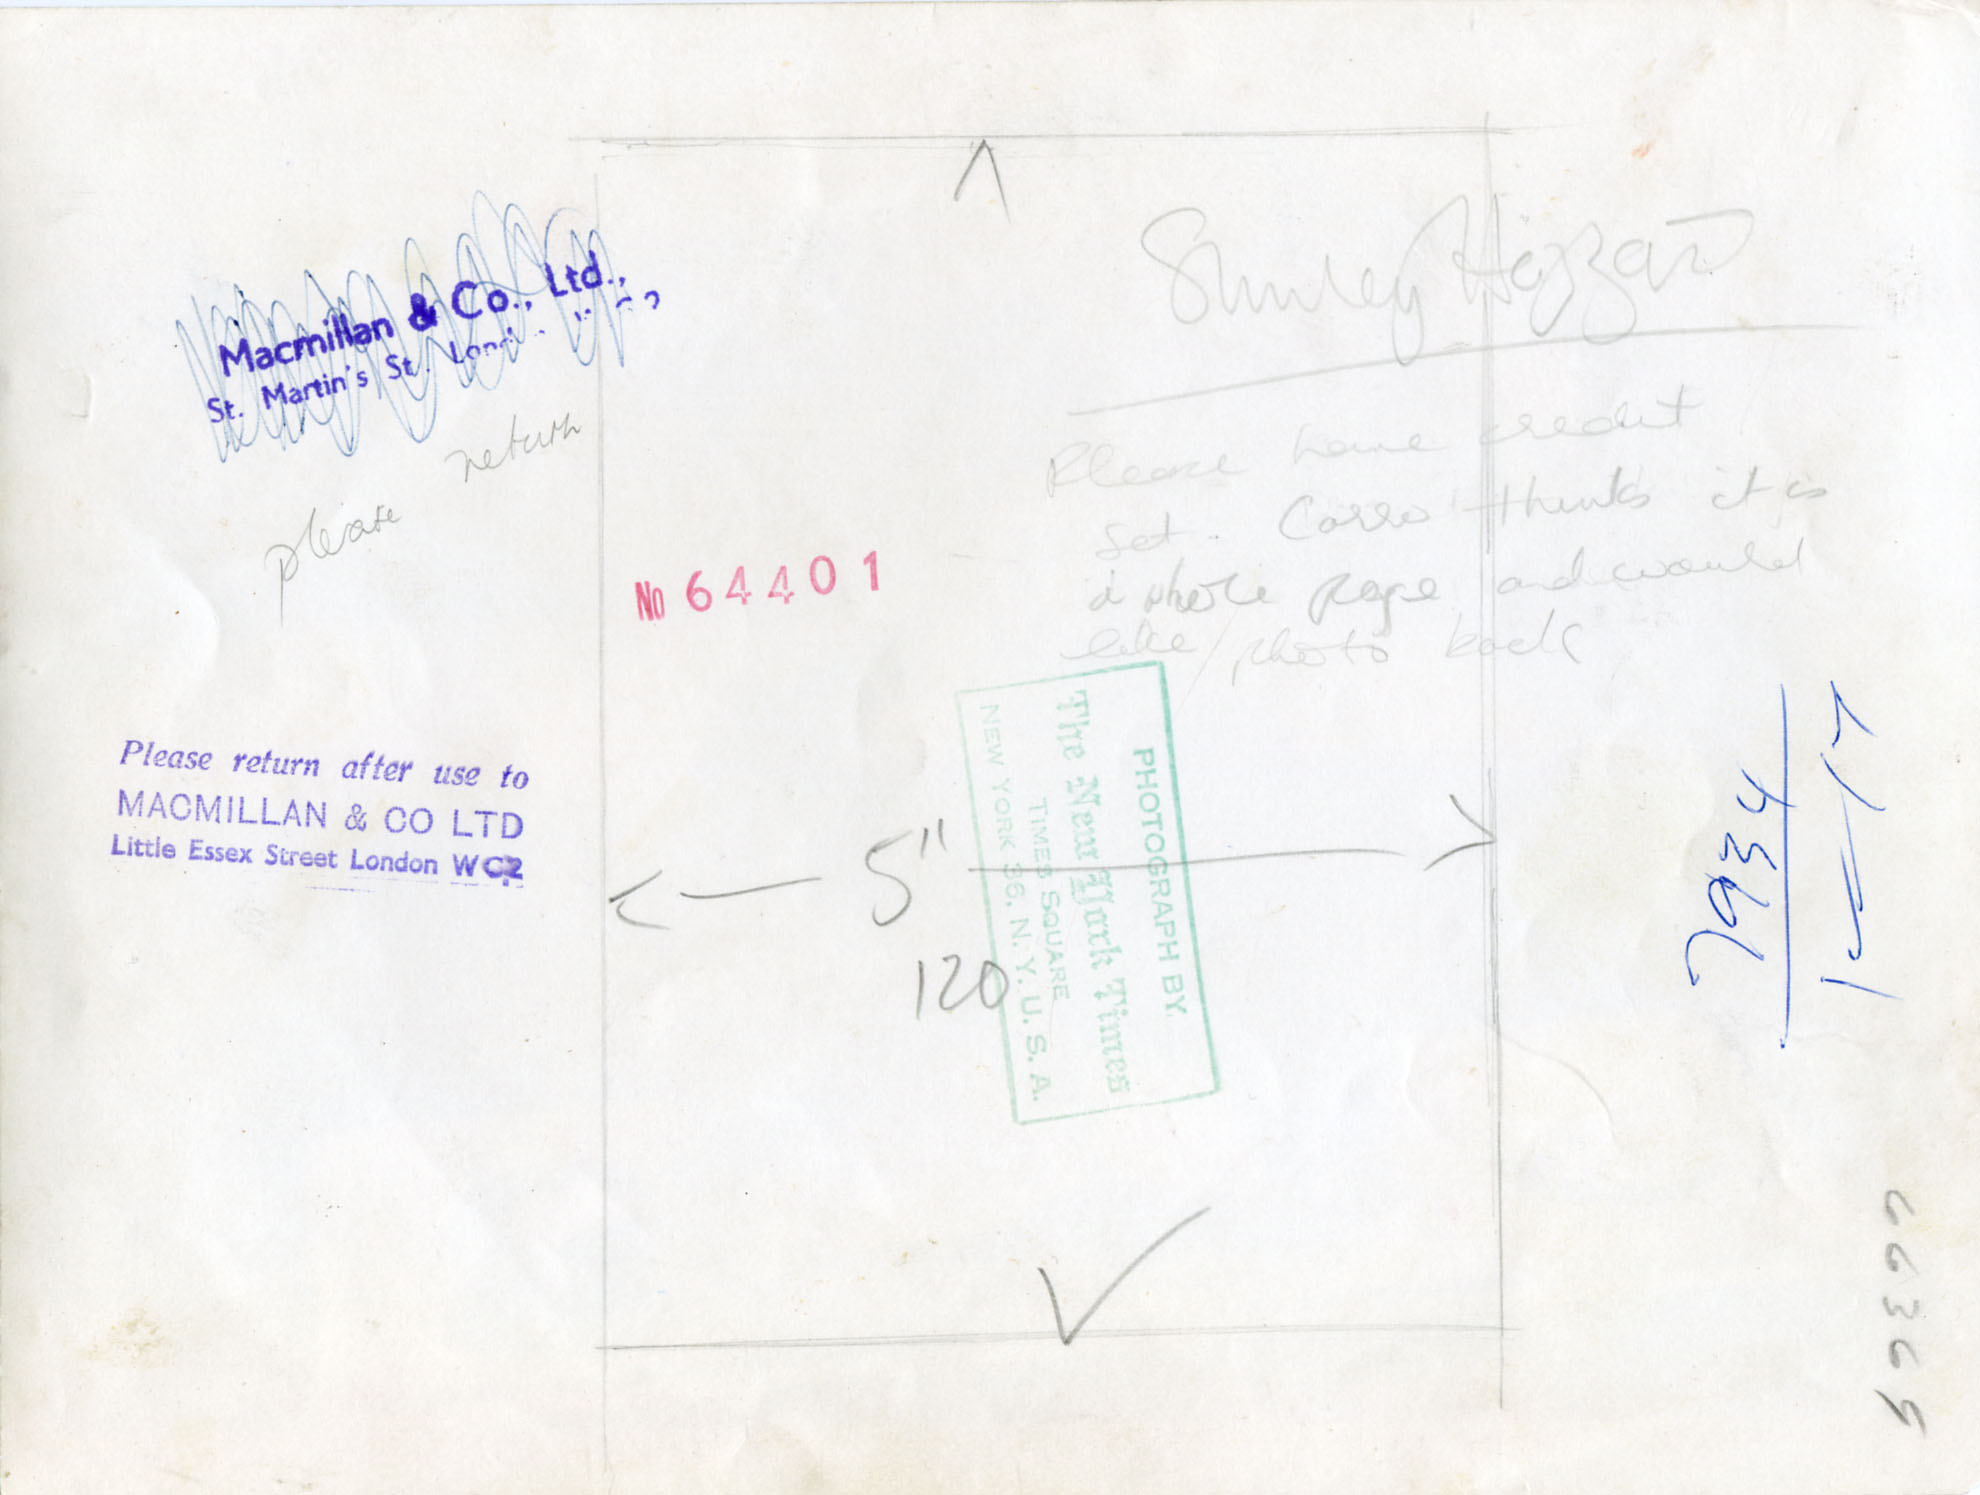 Macmillan & Co., Ltd.,
St. Martin's St. London
please return
Shirley Hazzard
Please have credit
set. Carro thinks it is
a whole page and would
like photo back
No 64401
PHOTOGRAPH BY
The New York Times
TIMES SQUARE
NEW YORK 36, N. Y. U. S. A.
Please return after use to
MACMILLAN & CO LTD
Little Essex Street London WC2
5"
120
7934